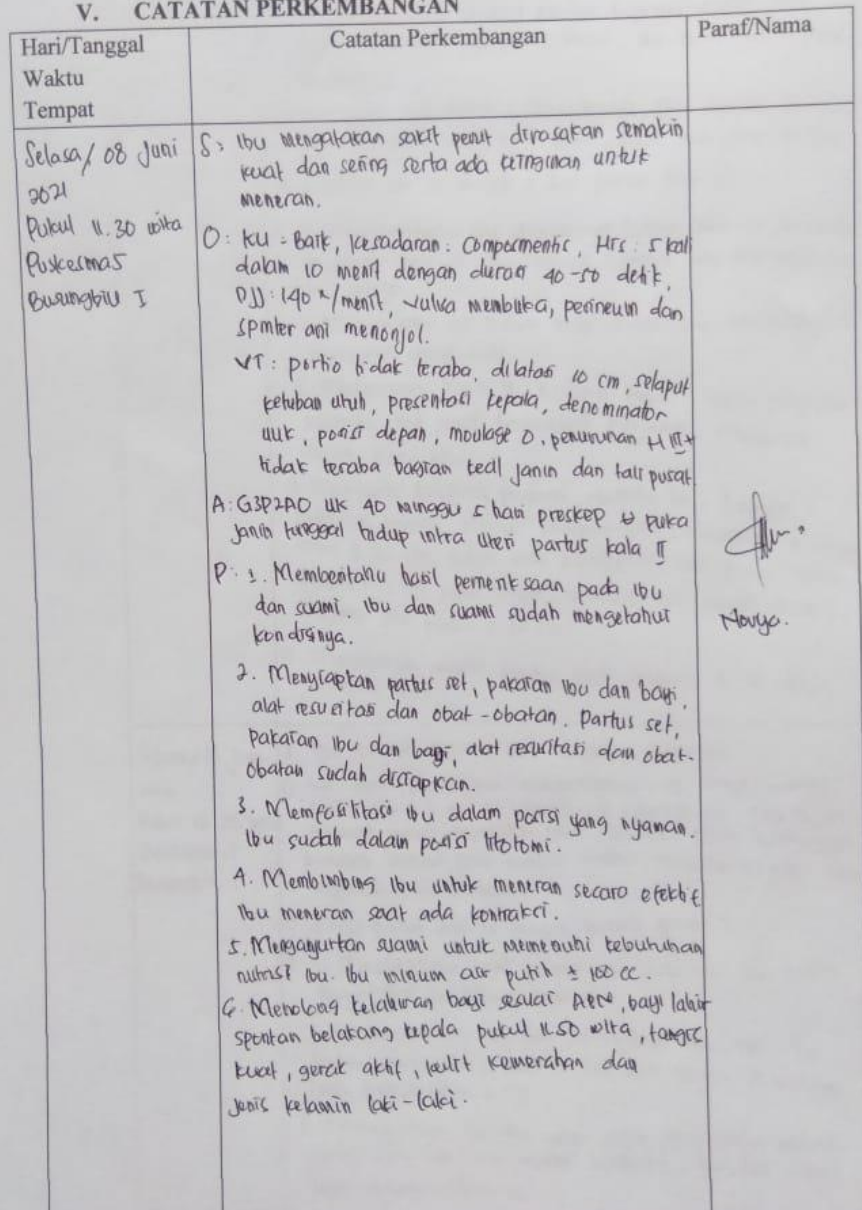 V. CATATAN PERKEMBANGAN
Hari/Tanggal
Waktu
Tempat
Catatan Perkembangan
Paraf/Nama
Selasa/ 08 Juni
2021
Pukul 11.30 wita
Puskesmas
Busungbiu I
S: Ibu mengatakan sakit perut dirasakan semakin
kuat dan sering serta ada keinginan untuk
meneran.
O: KU : Baik, kesadaran : Composmentis, His : 5 kali
dalam 10 menit dengan durasi 40-50 detik,
DJJ : 140 x/menit, vulva membuka, perineum dan
spinter ani menonjol.
VT : portio tidak teraba, dilatasi 10 cm, selaput
ketuban utuh, presentasi kepala, denominator
uuk, posisi depan, moulage 0, penurunan H III+
tidak teraba bagian kecil janin dan tali pusat
A: G3P2A0 UK 40 minggu 5 hari preskep U puka
janin tunggal hidup intra uteri partus kala II
P: 1. Memberitahu hasil pemeriksaan pada ibu
dan suami. Ibu dan suami sudah mengetahui
kondisinya.
2. Menyiapkan partus set, pakaian ibu dan bayi,
alat resusitasi dan obat-obatan. Partus set,
pakaian ibu dan bayi, alat resusitasi dan obat-
obatan sudah disiapkan.
3. Memfasilitasi ibu dalam posisi yang nyaman.
Ibu sudah dalam posisi litotomi.
4. Membimbing ibu untuk meneran secara efektif
Ibu meneran saat ada kontraksi.
5. Menganjurkan suami untuk memenuhi kebutuhan
nutrisi ibu. Ibu minum air putih ± 100 cc.
6. Menolong kelahiran bayi sesuai APN, bayi lahir
spontan belakang kepala pukul 11.50 wita, tangis
kuat, gerak aktif, kulit kemerahan dan
jenis kelamin laki-laki.
Novya.